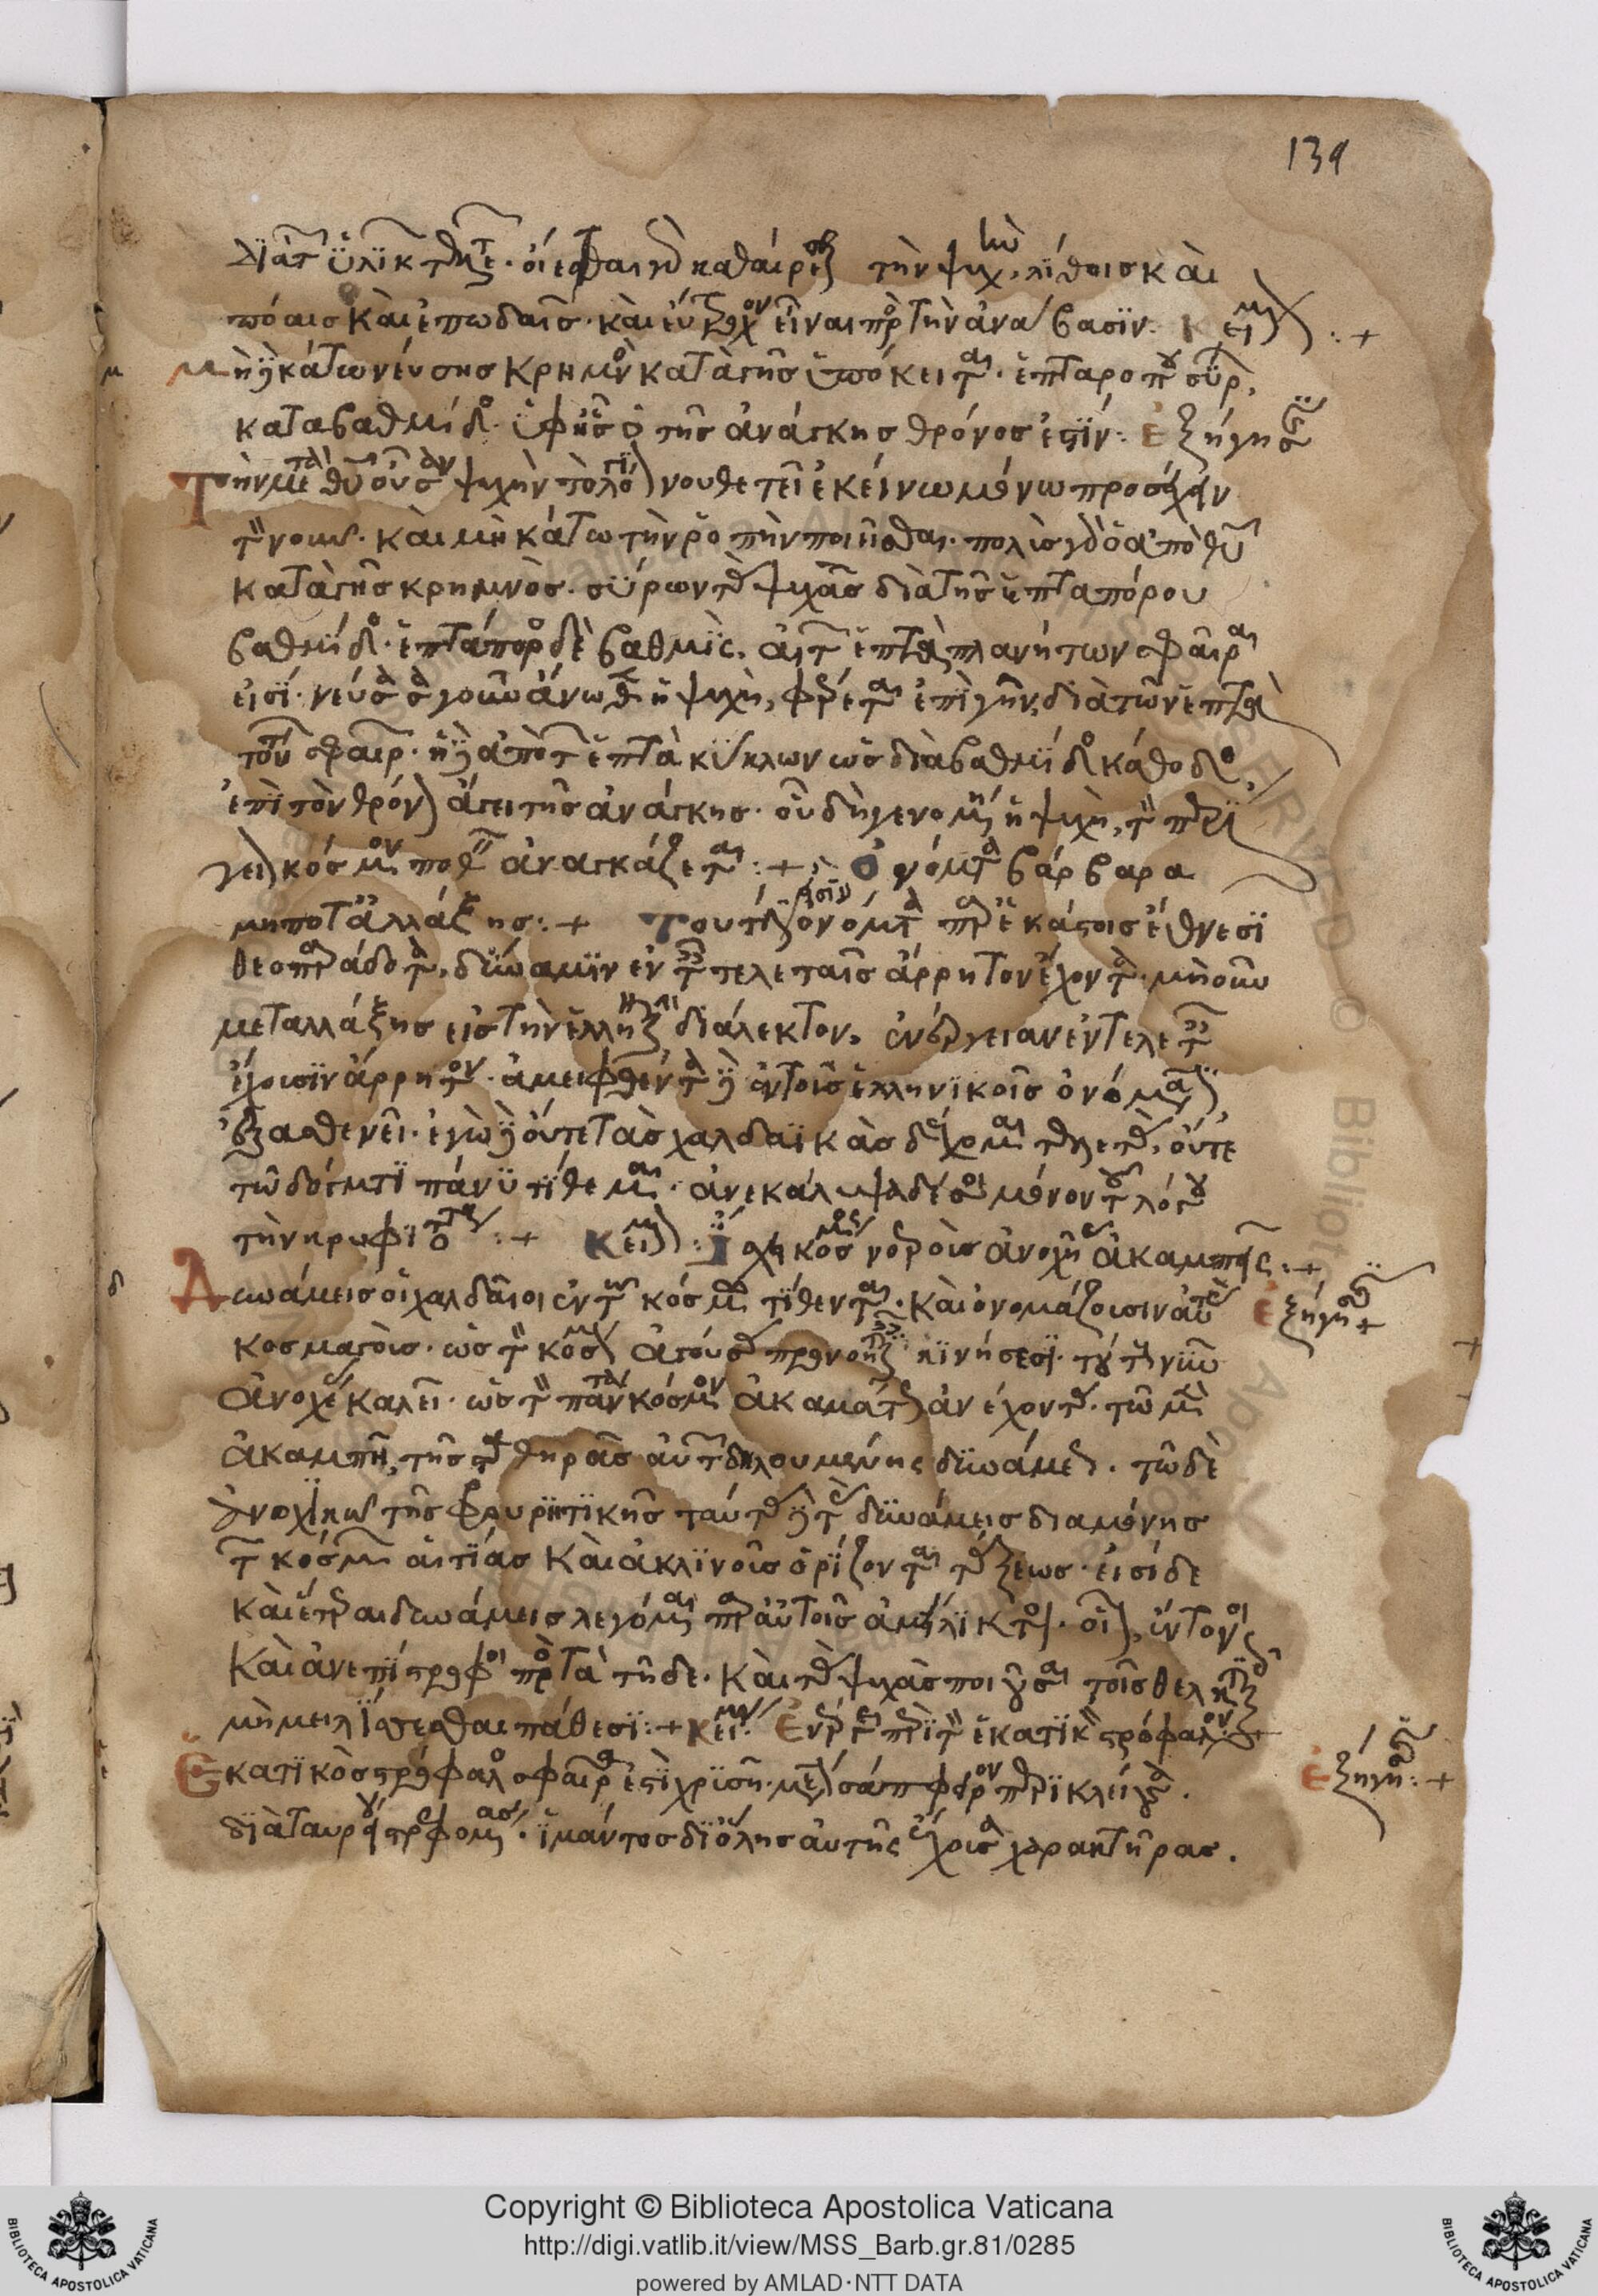 139
διὰ τ ὑλικ τελετ. οἵεσθαι γὰρ καθαίρειν τὴν ψυχὴν λίθοις καὶ
πόαις καὶ ἐπωδαῖς. καὶ εὔτροχον εἶναι πρὸς τὴν ἀνάβασιν. κείμ :+
μὴ κάτω νεύσῃς κρημνὸν κατὰ γῆς ὑπόκειται. ἑπταπόρου σύρ
καταβαθμίδος. ὑφ' ἣν ὁ τῆς ἀνάγκης θρόνος ἐστίν: ἐξήγησ
Τὴν μετὰ θεοῦ οὖσαν ψυχὴν τὸ λόγιον νουθετεῖ ἐκείνω μόνω προσέχειν
τὸν νοῦν. καὶ μὴ κάτω τὴν ῥοπὴν ποιεῖσθαι. πολὺς γὰρ ὁ ἀπὸ θεοῦ
κατὰ γῆς κρημνὸς. σύρων τὰς ψυχὰς διὰ τῆς ἑπταπόρου
βαθμίδος. ἑπτάπορος δὲ βαθμὶς. αἱ τ ἑπτὰ πλανήτων σφαῖραι
εἰσί. νεύσασα γοῦν ἄνωθεν ἡ ψυχὴ, φέρεται ἐπὶ γῆν, διὰ τῶν ἑπτὰ
τούτων σφαιρ. ἡ γὰρ ἀπὸ τ ἑπτὰ κύκλων ὡς διὰ βαθμίδος κάθοδος,
ἐπὶ τὸν θρόνον ἄγει τῆς ἀνάγκης. οὗ δὴ γενομένη ἡ ψυχὴ, τὸν περὶ
γειον κόσμον ποθεῖν ἀναγκάζεται :+ Ὀνόματα βάρβαρα
μήποτ' ἀλλάξῃς :+ Τουτέστιν ὀνόματα παρ' ἑκάστοις ἔθνεσι
θεοπαράδοτα, δύναμιν ἐν τ τελεταῖς ἄρρητον ἔχοντα. μὴ οὖν
μεταλλάξῃς εἰς τὴν ἑλληνικὴν διάλεκτον. ἐνέργειαν ἐν τελετ
ἔχουσιν ἄρρητον. ἀμειφθέντα γὰρ ἐν τοῖς ἑλληνικοῖς ὀνόμασιν
ἐξασθενεῖ. ἐγὼ γὰρ οὔτε τὰς χαλδαϊκὰς δέχομαι τελετὰς, οὔτε
τῶ δόγματι πάνυ τίθεμαι. ἀνεκάλυψα δέ σοι μόνον τοῦ λόγου
τὴν κρυφιότητα :+ κείμ : νοεροῖς ἀνοχῆς ἀκαμπής :+
Δυνάμεις οἱ χαλδαῖοι ἐν τῶ κόσμω τίθενται. καὶ ὀνομάζουσιν αὐτὰς Ἐξήγησ
κοσμαγοὺς. ὡς τὸν κόσμον ἀγούσας προνοητικαῖς κινήσεσι. ταύτας γοῦν
ἀνοχέας καλεῖ. ὡς τὸν πάντα κόσμον ἀκαμάτως ἀνέχοντας. τῶ μὲν
ἀκαμπῆ, τῆς σταθηρᾶς αὐτ δηλουμένης δυνάμεως. τῶ δὲ
ἀνοχικῶ τῆς φρουρητικῆς ταύτας γὰρ τὰς δυνάμεις διὰ μόνης
τ κόσμ αἰτίας καὶ ἀκλινοῦς ὁρίζονται τάξεως. εἰσὶ δὲ
καὶ ἕτεραι δυνάμεις λεγόμεναι παρ' αὐτοῖς ἀμείλικτοι. οἷον, εὔτονοι
καὶ ἀνεπίστροφοι πρὸς τὰ τῆδε. καὶ τὰς ψυχὰς ποιοῦσαι τοῖς θελκτικοῖς
μὴ μειλίσσεσθαι πάθεσι :+ κείμ: Ἐνέργει περὶ τὸν ἑκατικὸν στρόφαλον :+
Ἑκατικὸς στρόφαλος σφαῖρα ἐστὶ χρυσῆ. μέσον σάπφειρον περικλείουσα. Ἐξήγησ :+
διὰ ταυρείου στρεφομένη. ἱμάντος δι' ὅλης αὐτῆς ἔχουσα χαρακτῆρας.
Copyright © Biblioteca Apostolica Vaticana
http://digi.vatlib.it/view/MSS_Barb.gr.81/0285
powered by AMLAD·NTT DATA
BIBLIOTECA APOSTOLICA VATICANA
BIBLIOTECA APOSTOLICA VATICANA